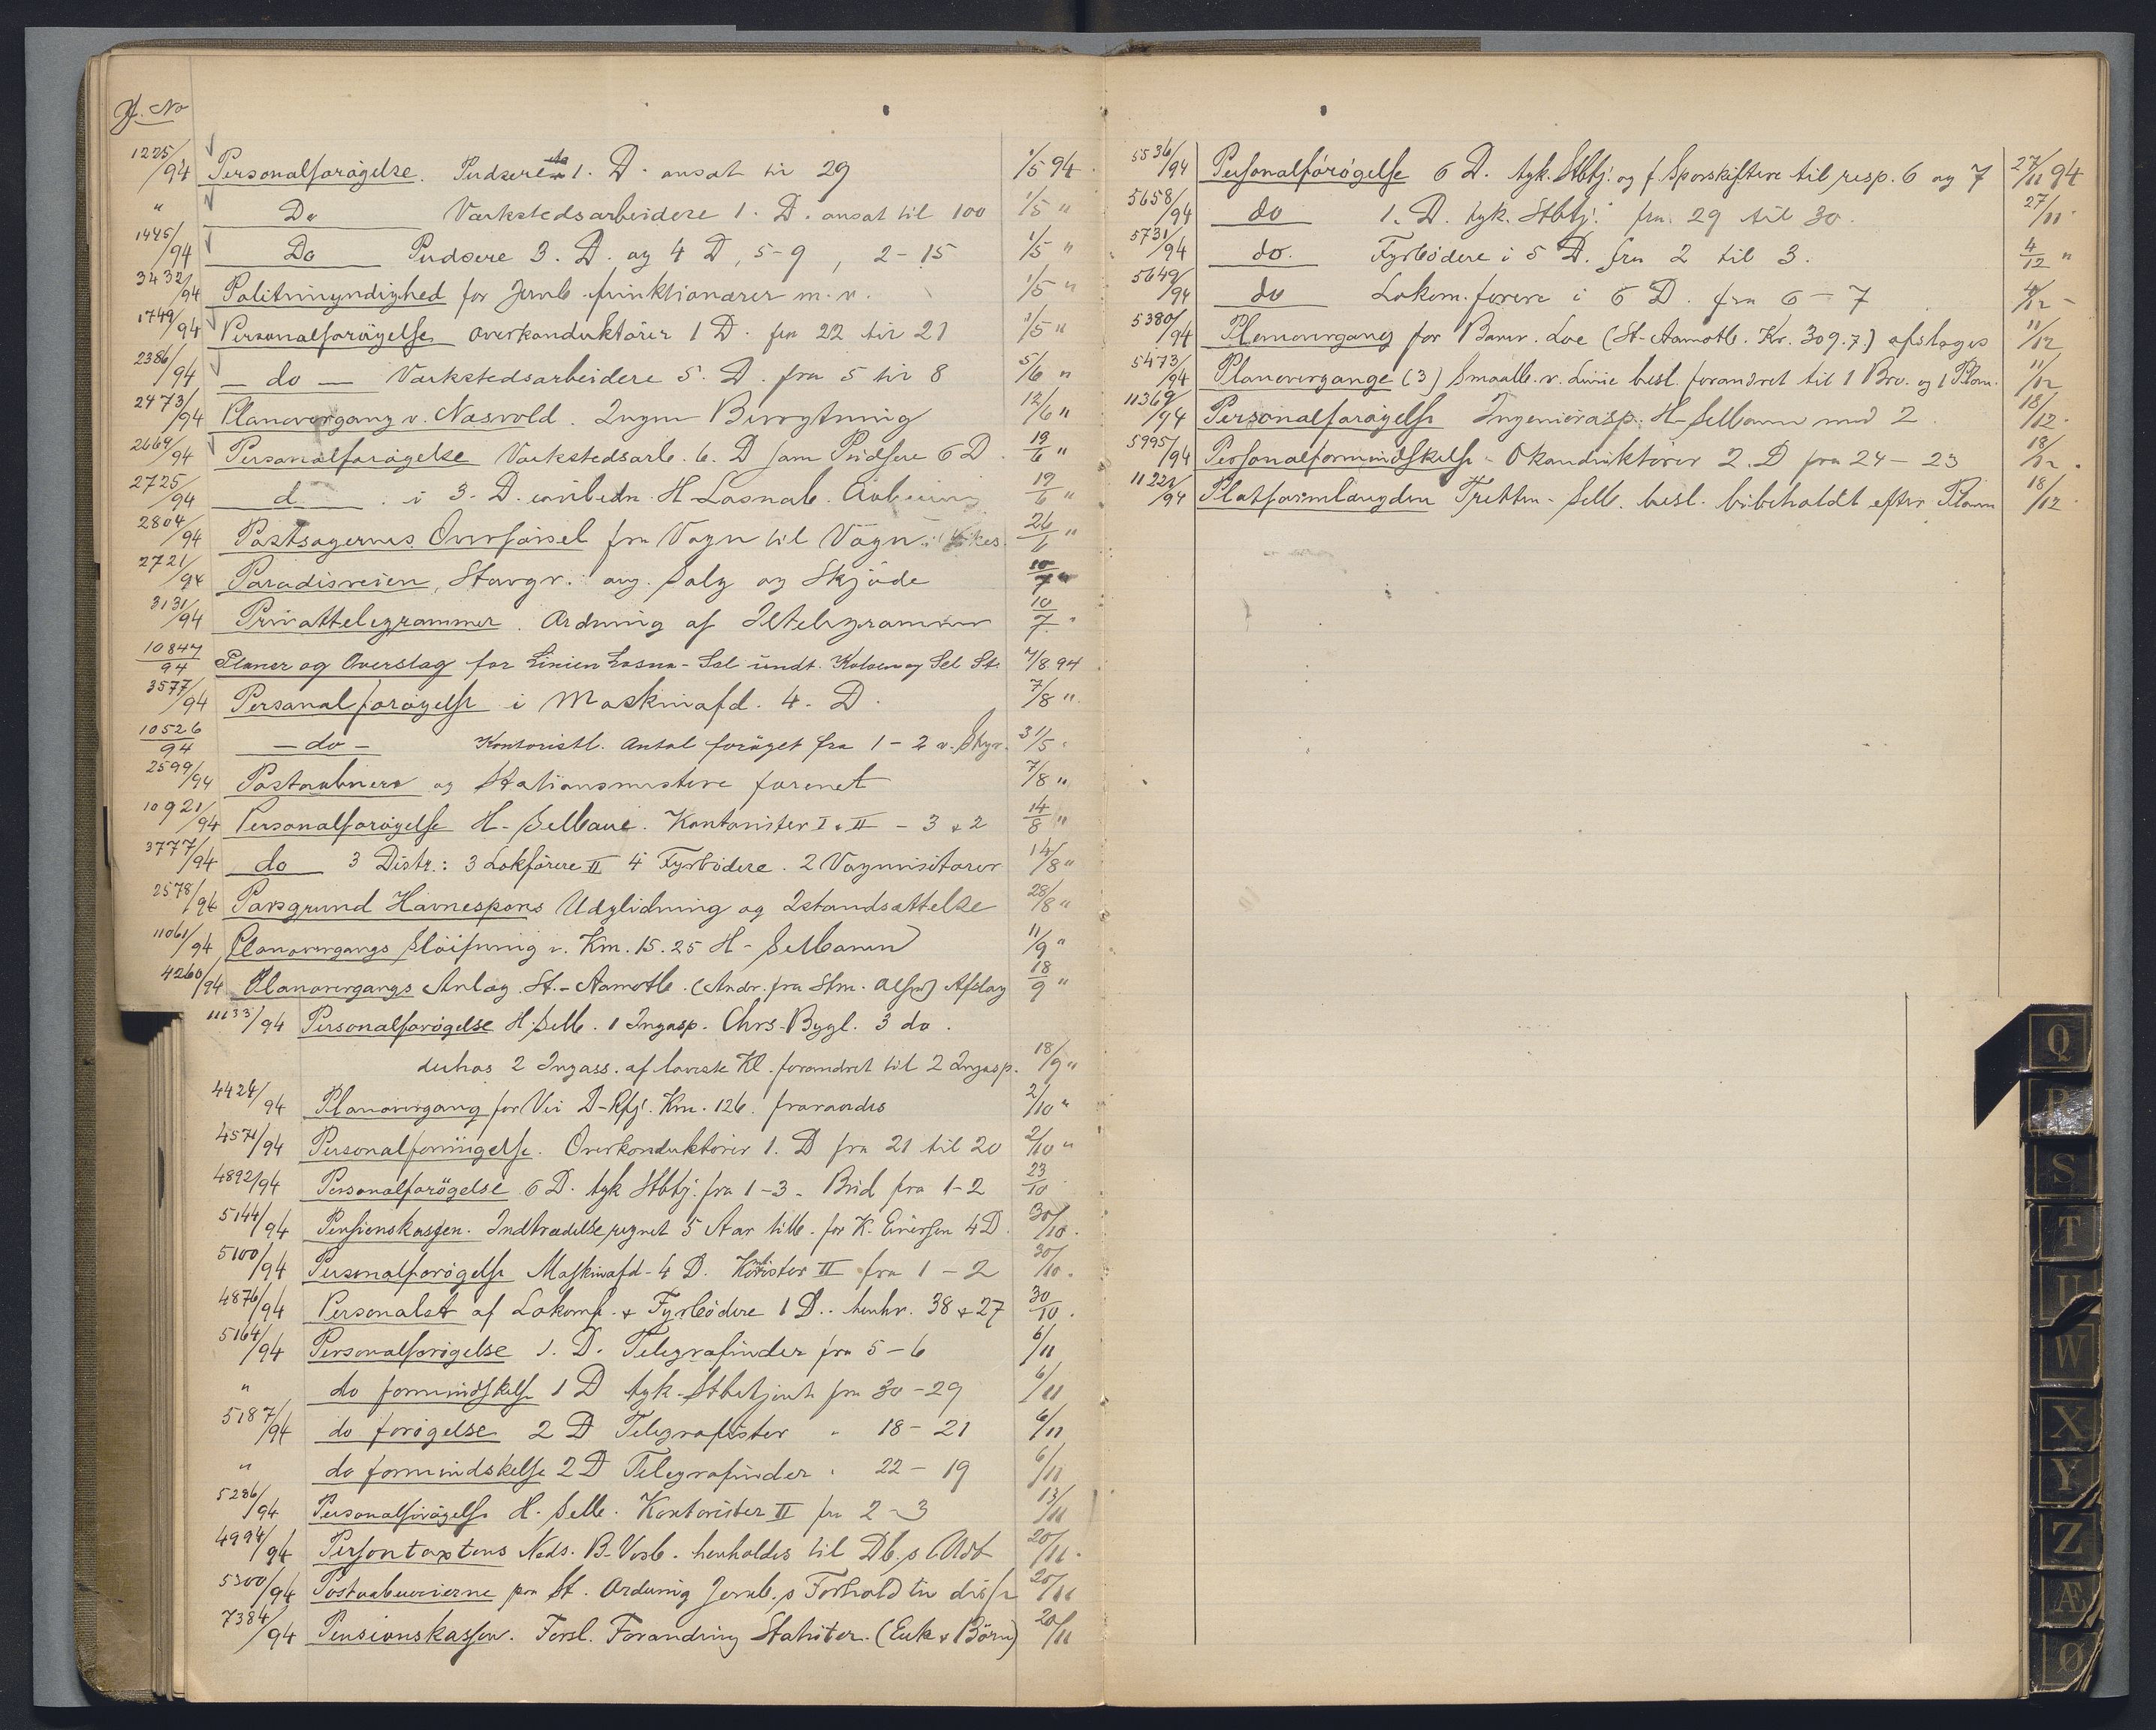 J. No
1225/94 Personalforøgelse. Pudsere 1. D. ansat til 29 1/5 94.
" Do Værkstedsarbeidere 1. D. ansat til 100 1/5 "
1445/94 Do Pudsere 3. D. og 4 D, 5-9, 2-15 1/5 "
3432/94 Politimyndighed for Jernb. funktionærer m. v. 1/5 "
1749/94 Personalforøgelse Overkonduktører 1 D. fra 22 til 21 1/5 "
2386/94 — do — Værkstedsarbeidere 5. D. fra 5 til 8 5/6 "
2473/94 Planovergang v. Næsvold. Ingen Bevogtning 12/6 "
2669/94 Personalforøgelse Værkstedsarb. 6. D samt Pudsere 6 D. 19/6 "
2725/94 d i 3. D. H-Losnab. 19/6 "
2804/94 Postsagernes Overførsel fra Vogn til Vogn 26/6 "
2721/94 Paradisveien, Stavgr. ang. Salg og Skjøde 10/7 "
3131/94 Privattelegrammer. Ordning af Iltelegrammer 10/7 "
10847/94 Planer og Overslag for Linien Losna-Sel undt. Kolsen og Sel St. 7/8 94
3577/94 Personalforøgelse i Maskinafd. 4. D. 7/8 "
10526/94 — do — Kontoristl. Antal forøget fra 1-2 v. Styr. 31/5 "
2599/94 Postaabnere og Stationsmestere forenet 7/8 "
10921/94 Personalforøgelse H-Selbane. Kontorister I & II - 3 & 2 14/8 "
3777/94 do 3 Distr.: 3 Lokførere II 4 Fyrbødere. 2 Vognvisitører 14/8 "
2578/94 Porsgrund Havnespors Udglidning og Istandsættelse 28/8 "
11061/94 Planovergangs Sløifning v. Km. 15.25 H-Selbanen 11/9 "
4260/94 Planovergangs Anlæg. St.-Aamotb. (Andr. fra Stm. Olsen) Afslag 18/9 "
11133/94 Personalforøgelse H Selb. 1 Ingasp. Chrs-Bygl. 3 do.
desuden 2 Ingass. af laveste Kl. forandret til 2 Ingasp. 18/9 "
4424/94 Planovergang for Vei D-Rfj. Km. 126. fraraades 2/10 "
4571/94 Personalforøgelse. Overkonduktører 1. D fra 21 til 20 2/10 "
4892/94 Personalforøgelse 6 D. tyk Stbtj. fra 1-3. Bud fra 1-2 23/10
5144/94 Pensionskassen. Indtrædelse regnet 5 Aar tilb. for K. Eversen 4 D. 30/10.
5100/94 Personalforøgelse Maskinafd-4 D. Kontorister II fra 1-2 30/10.
4876/94 Personalet af Lokomf. & Fyrbødere 1 D.. henhv. 38 & 27 30/10.
5164/94 Personalforøgelse 1. D. Telegrafinder fra 5-6 6/11
" do formindskelse 1 D tyk. Stbetjente fra 30-29 6/11
5187/94 do forøgelse 2 D Telegrafister " 18-21 6/11
" do formindskelse 2 D Telegrafinder " 22-19 6/11
5286/94 Personalforøgelse H. Selb. Kontorister II fra 2-3 13/11
4994/94 Persontaxtens Neds. B-Vosb. henholdes til Db.s Udt 20/11.
5300/94 Postaabnerierne paa St. Ordning Jernb.s Forhold til disse 20/11
7384/94 Pensionskassen. Forsl. Forandring Statuter. (Enke & Børn) 20/11
5536/94 Personalforøgelse 6 D. tyk. Stbtj. og f. Sporskiftere til resp. 6 og 7 27/11 94
5658/94 do 1. D. tyk. Stbtj. fra 29 til 30. 27/11.
5731/94 do. Fyrbødere i 5 D. fra 2 til 3. 4/12 "
5649/94 do Lokom.førere i 6 D. fra 6-7 4/12 -
5380/94 Planovergang for Loe (St-Aamotb. Kr. 309.7.) afslages 11/12
5473/94 Planovergange (3) Smaalb. v. Linie besl. forandret til 1 Bro. og 1 Plan. 11/12
11369/94 Personalforøgelse Ingeniørasp. H-Selbanen med 2. 18/12.
5995/94 Personalformindskelse. Okonduktører 2. D fra 24-23 18/12.
11221/94 Platformlængden Tretten-Selb. besl. bibeholdt efter Planen 18/12.
Q
R
S
T
U
W
X
Y
Z
Æ
Ø